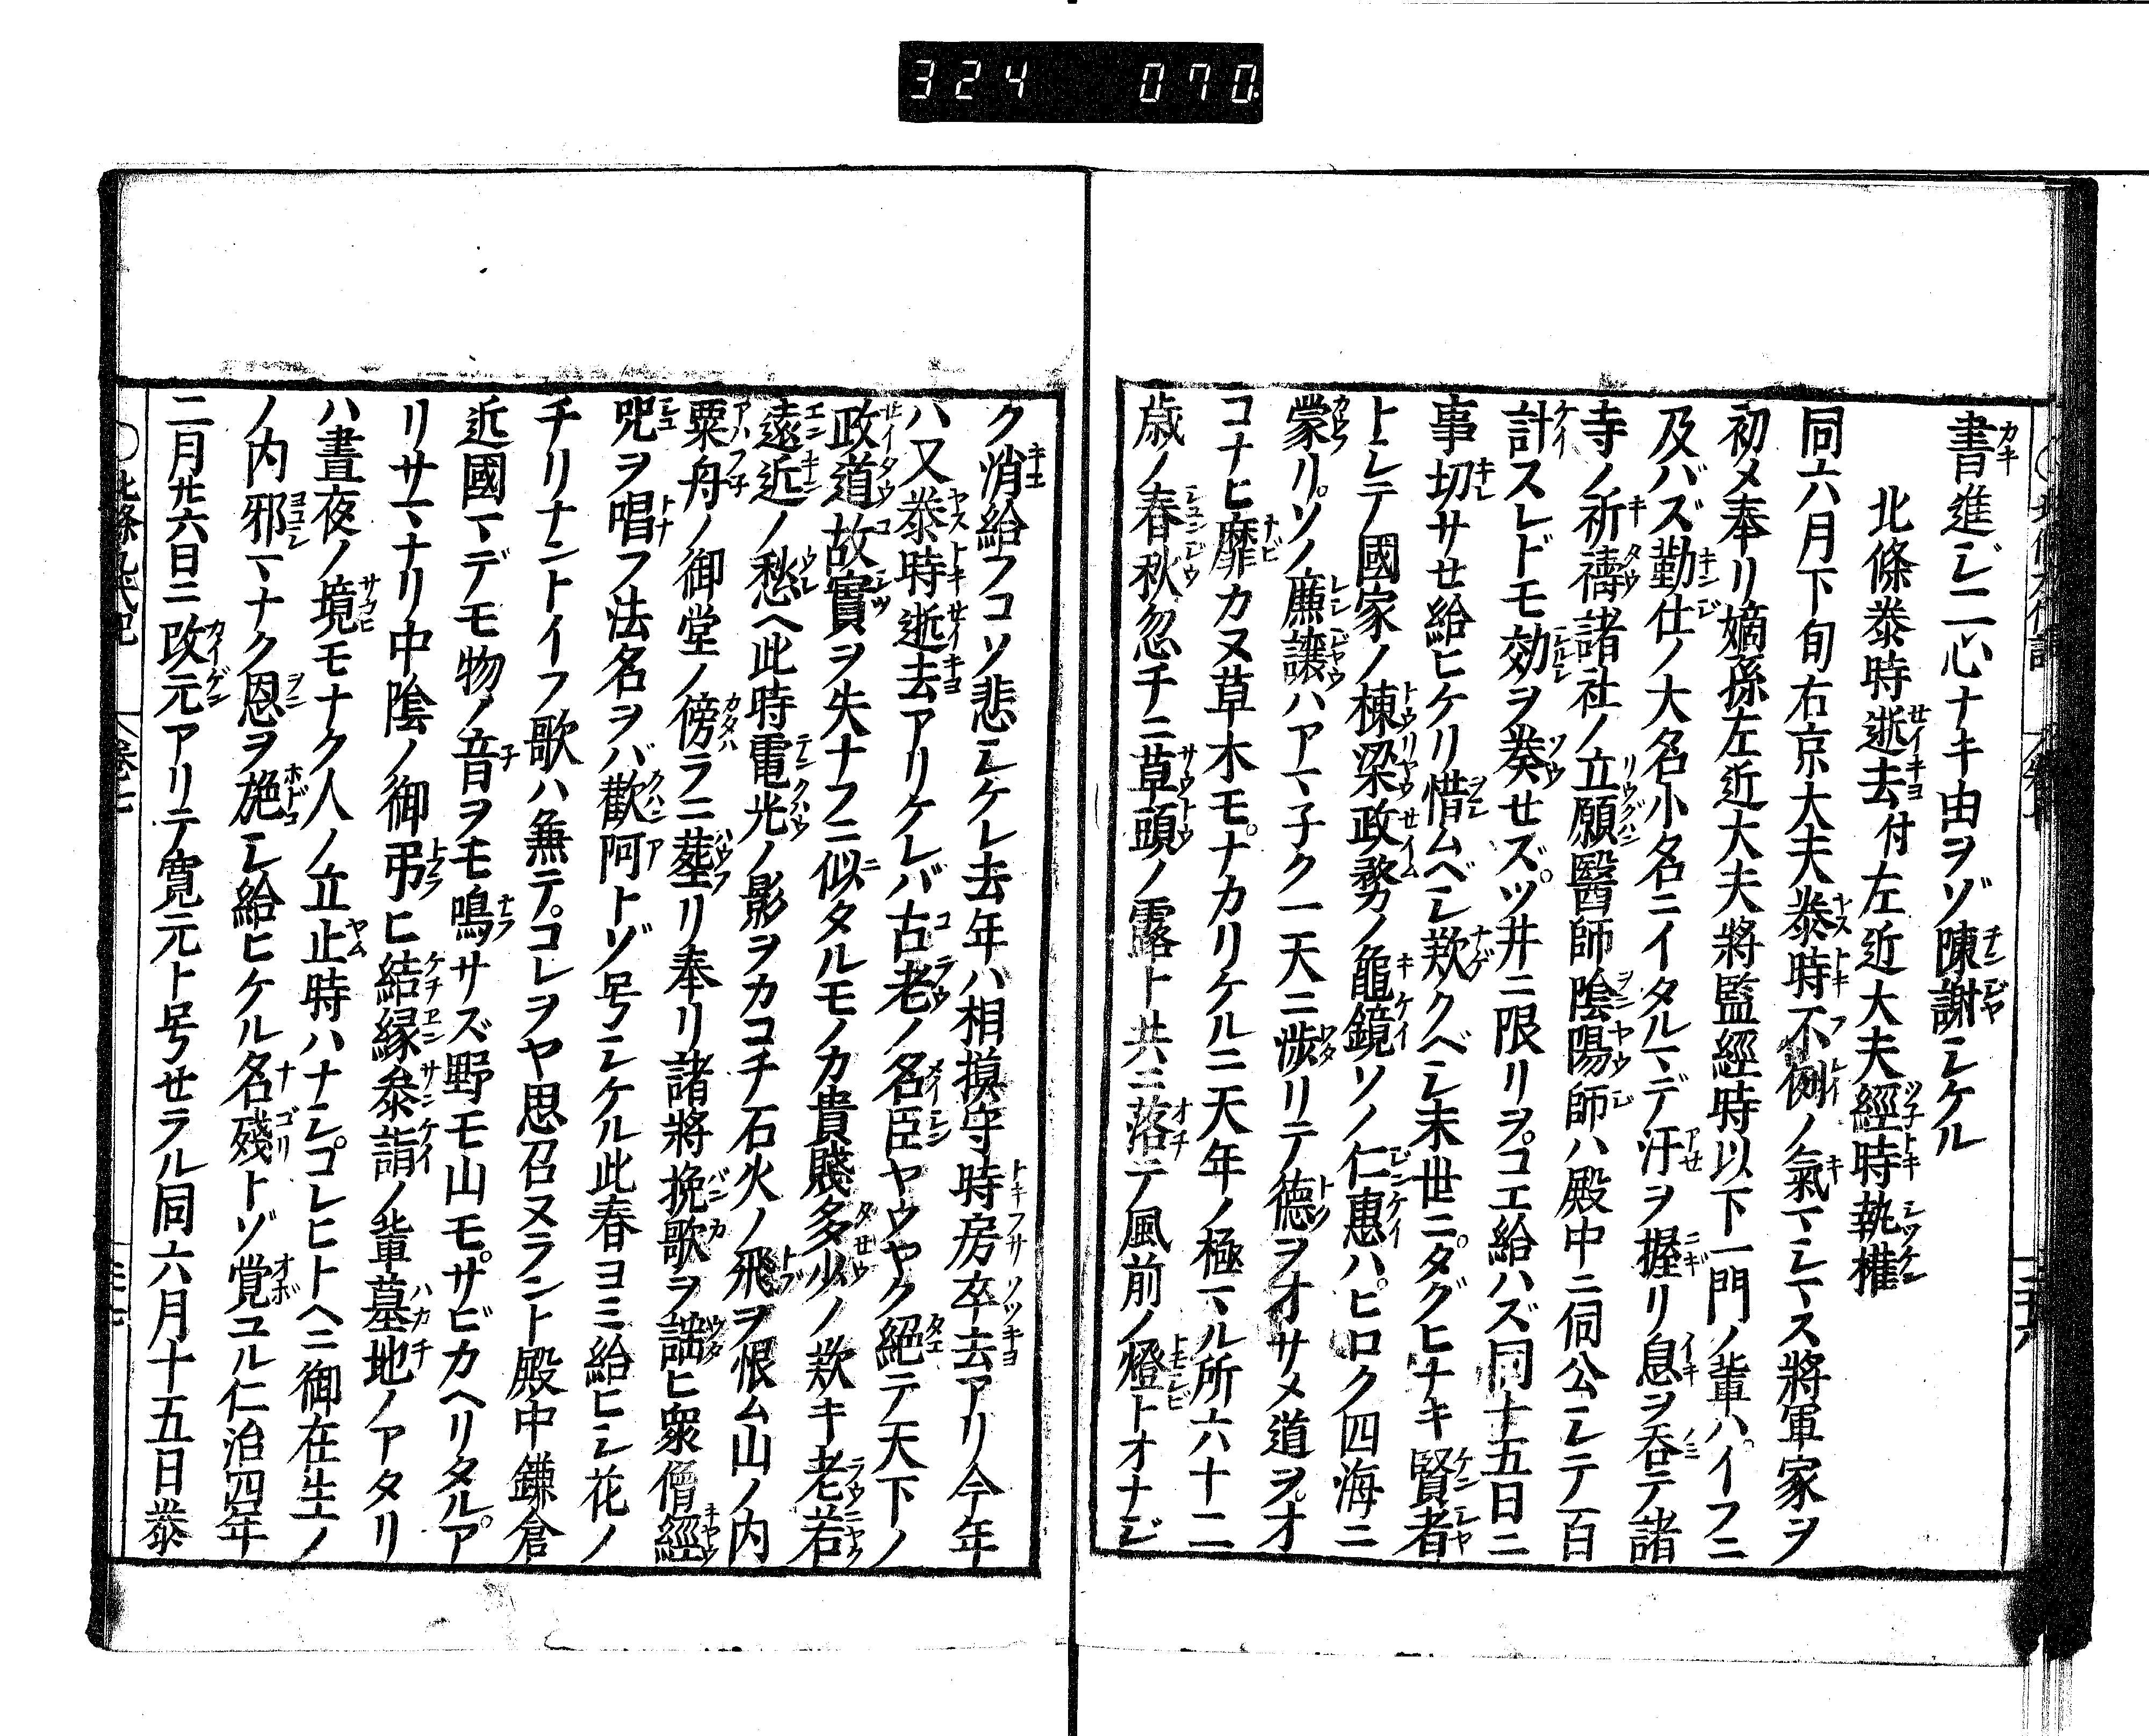 324 070
書進ジ二心ナキ由ヲゾ陳謝シケル
北條泰時逝去付左近大夫經時執權
同六月下旬右京大夫泰時不例ノ氣マシマス將軍家ヲ
初メ奉リ嫡孫左近大夫將監經時以下一門ノ輩ハイフニ
及バズ勤仕ノ大名小名ニイタルマデ汗ヲ握リ息ヲ呑テ諸
寺ノ祈禱諸社ノ立願醫師陰陽師ハ殿中ニ伺公シテ百
計スレドモ効ヲ奏セズツ井ニ限リヲコエ給ハズ同十五日ニ
事切サセ給ヒケリ惜ムベシ歎クベシ末世ニタグヒナキ賢者
トシテ國家ノ棟梁政務ノ龜鏡ソノ仁惠ハヒロク四海ニ
蒙リソノ廉讓ハアマ子ク一天ニ渉リテ德ヲオサメ道ヲオ
コナヒ靡カヌ草木モナカリケルニ天年ノ極マル所六十二
歳ノ春秋忽チニ草頭ノ露ト共ニ落テ風前ノ燈トオナジ
ク消給フコソ悲シケレ去年ハ相摸守時房卒去アリ今年
ハ又泰時逝去アリケレバ古老ノ名臣ヤウヤク絕テ天下ノ
政道故實ヲ失ナフニ似タルモノカ貴賤多少ノ歎キ老若
遠近ノ愁ヘ此時電光ノ影ヲカコチ石火ノ飛ヲ恨ム山ノ内
粟舟ノ御堂ノ傍ラニ葬リ奉リ諸將挽歌ヲ謡ヒ衆僧經
咒ヲ唱フ法名ヲバ歡阿トゾ号シケル此春ヨミ給ヒシ花ノ
チリナントイフ歌ハ兼テコレヲヤ思召ヌラント殿中鎌倉
近國マデモ物ノ音ヲモ鳴サズ野モ山モサビカヘリタルア
リサマナリ中陰ノ御弔ヒ結縁参詣ノ輩墓地ノアタリ
ハ晝夜ノ境モナク人ノ立止時ハナシコレヒトヘニ御在生ノ
ノ内邪マナク恩ヲ施シ給ヒケル名殘トゾ覚ユル仁治四年
二月廿六日ニ改元アリテ寛元ト号セラル同六月十五日泰